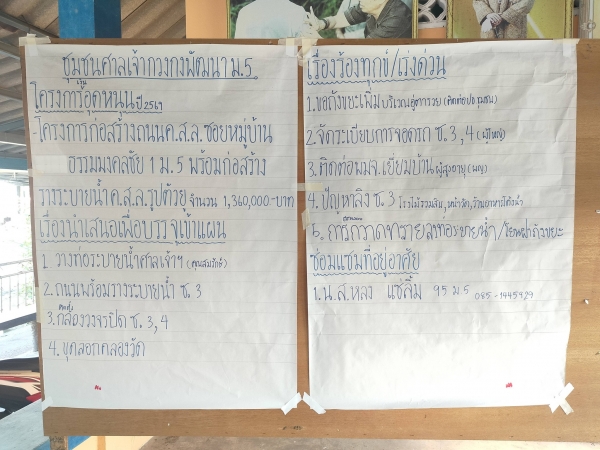 ชุมชนศาลเจ้ากวงกงพัฒนา ม.5
โครงการเงินอุดหนุนปี 2569
-โครงการก่อสร้างถนนค.ส.ล.ซอยหมู่บ้าน
ธรรมมงคลชัย 1 ม.5 พร้อมก่อสร้าง
รางระบายน้ำค.ส.ล.รูปตัวยู จำนวน 1,360,000-บาท
เรื่องนำเสนอเพื่อบรรจุเข้าแผน
1. วางท่อระบายน้ำศาลเจ้าฯ
2. ถนนพร้อมรางระบายน้ำ ซ.3
3. ติดตั้งกล้องวงจรปิด ซ.3,4
4. ขุดลอกคลองวัด
เรื่องร้องทุกข์/เร่งด่วน
1. ขอถังขยะเพิ่ม
2. จัดระเบียบการจอดรถ ซ.3,4 (ผู้ใหญ่)
3. ติดต่อพมจ.เยี่ยมบ้าน ผู้สูงอายุ (ผญ)
4. ปัญหาลิง ซ.3
5. การกวาดทรายลงท่อระบายน้ำ
ซ่อมแซมที่อยู่อาศัย
1. น.ส.หลง แซ่ลิ้ม 95 ม 5 085-1445929